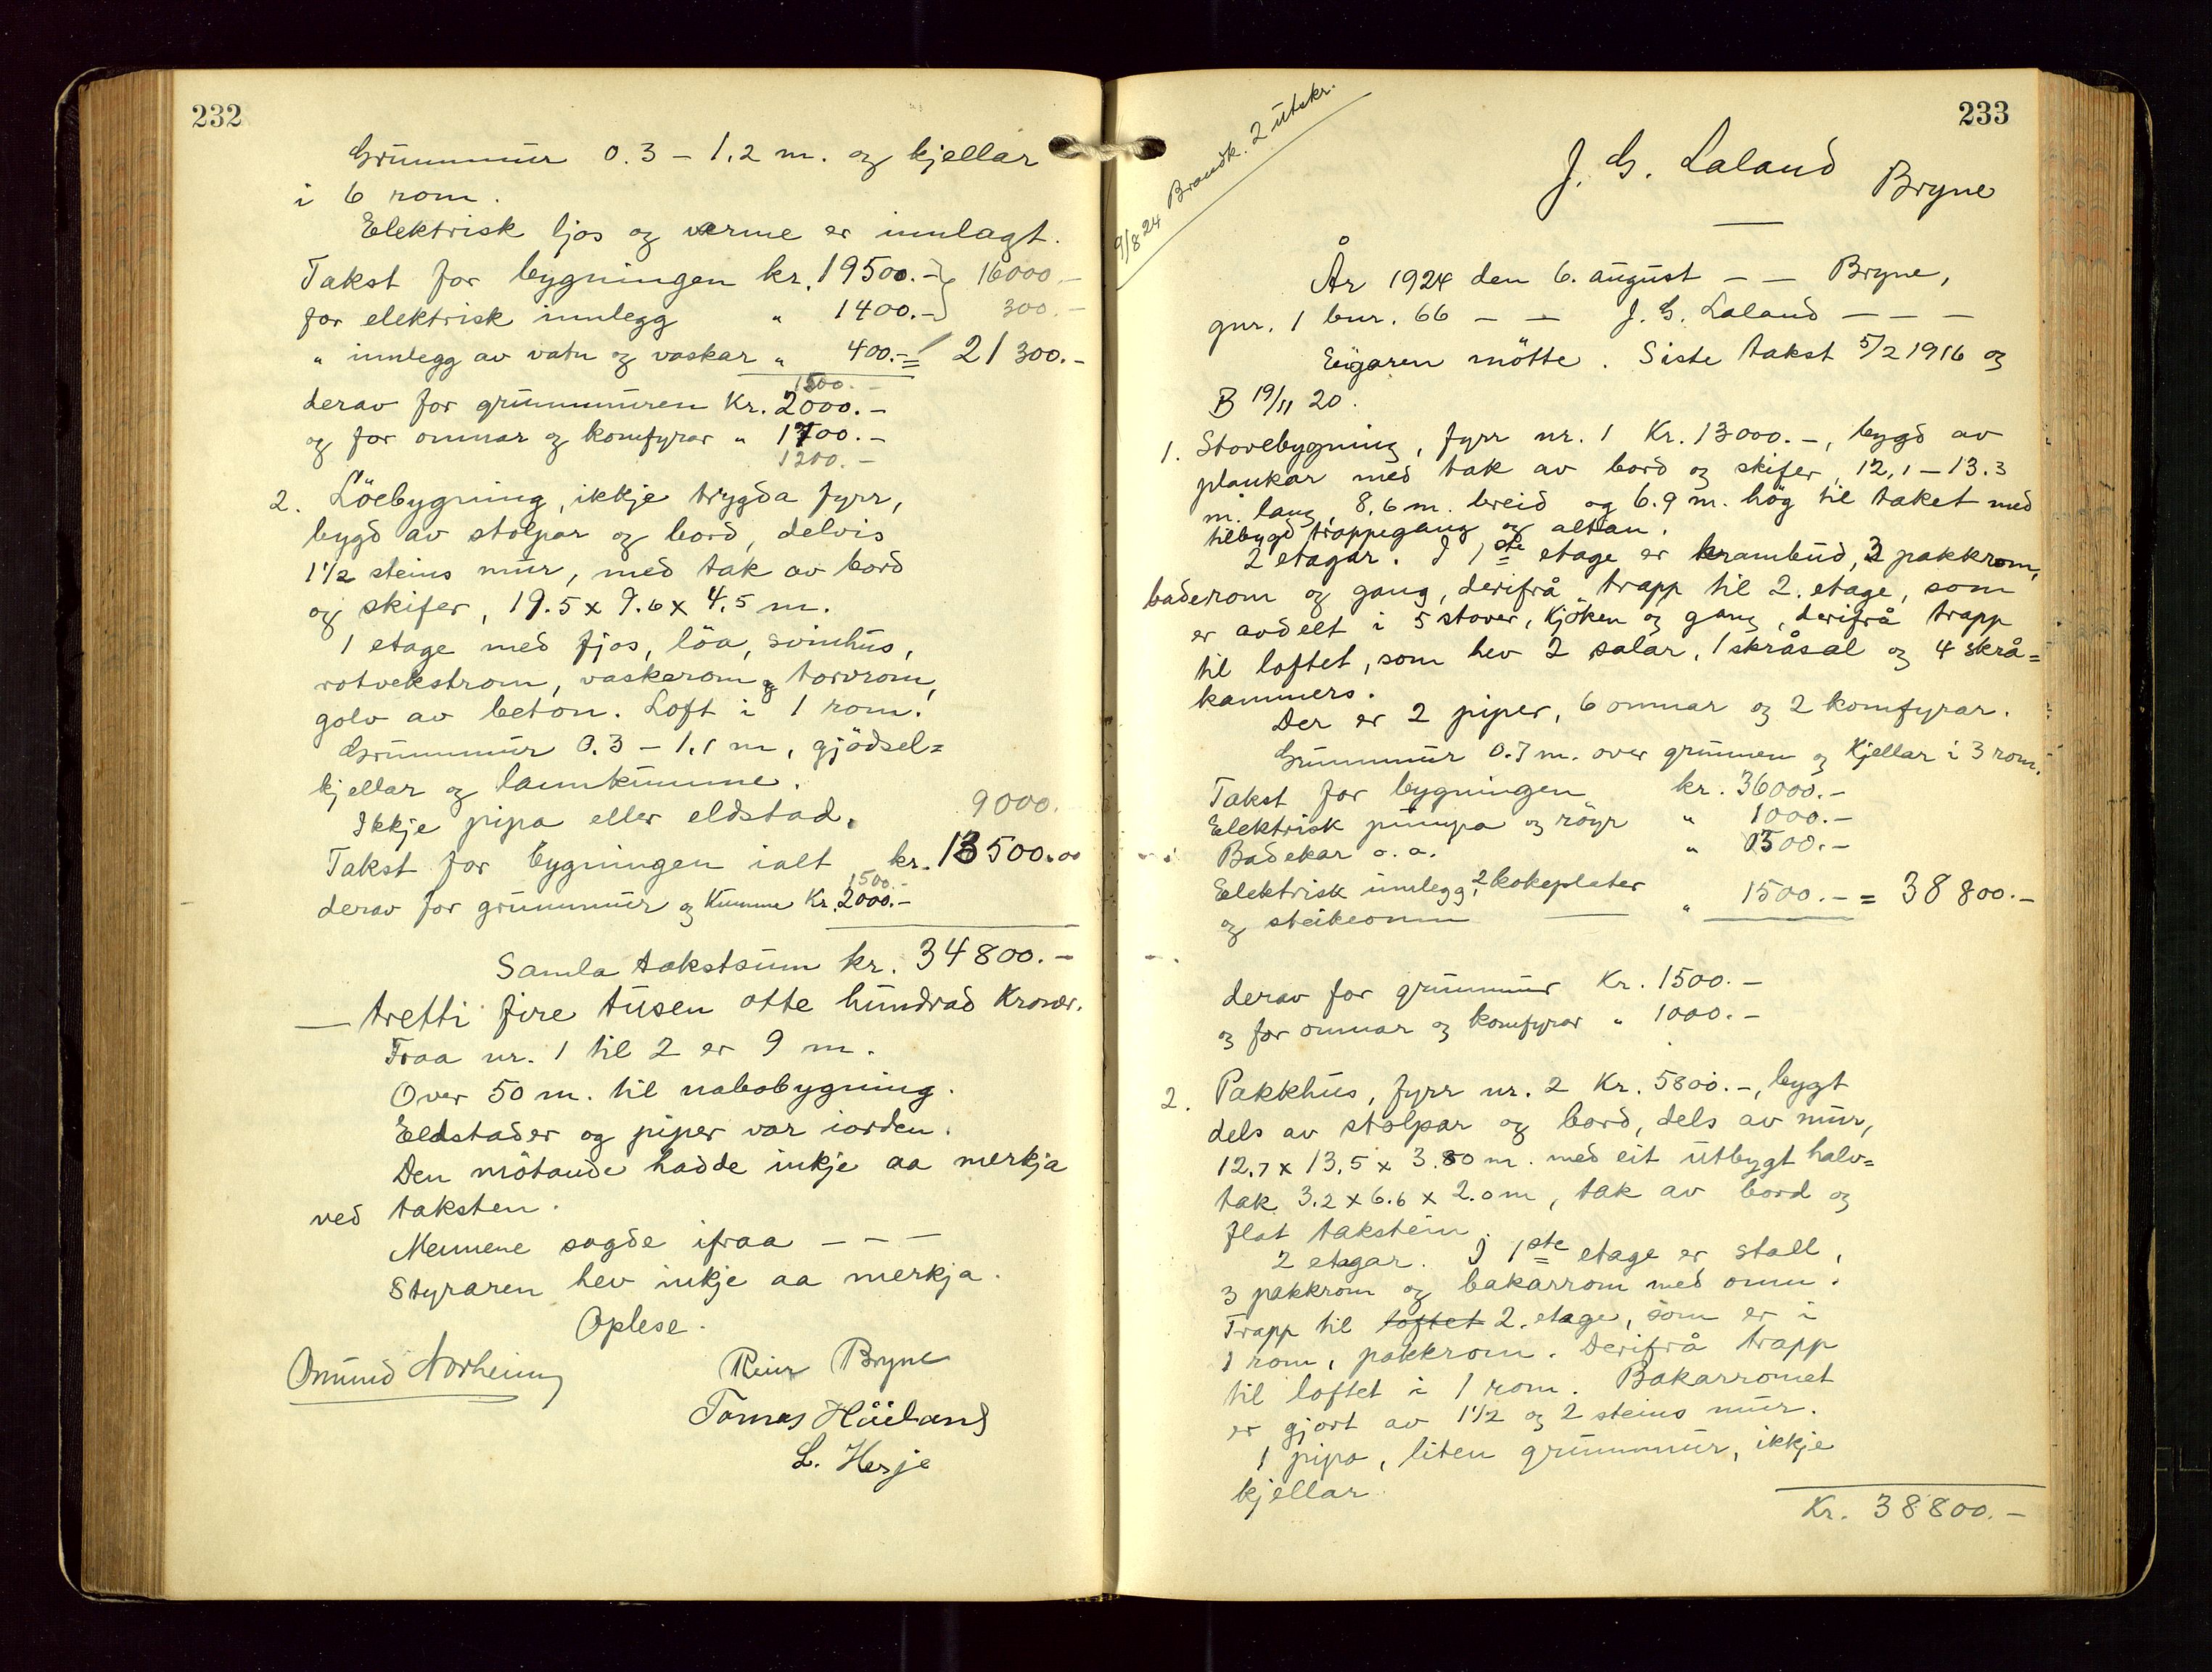 232
Grunnmur 0.3 – 1,2 m. og kjellar
i 6 rom.
Elektrisk ljos og verme er innlagt.
Takst for bygningen kr. 19500.– 16000.–
for elektrisk innlegg " 1400.– 300.–
" innlegg av vatn og vaskar " 400.– = 21300.–
1500.–
derav for grunnmuren Kr. 2000.–
og for omnar og komfyrar " 1700.–
1200.–
2. Löebygning, ikkje trygda fyrr,
bygd av stolpar og bord, delvis
1 1/2 steins mur, med tak av bord
og skifer, 19.5 x 9.6 x 4.5 m.
1 etage med fjos, löa, svinhus,
rotvekstrom, vaskerom og torvrom,
golv av beton. Loft i 1 rom.
Grunnmur 0.3 – 1,1 m, gjödsel=
kjellar og lannkumme.
Ikkje pipa eller eldstad. 9000.
Takst for bygningen ialt kr. 13500.00
1500.–
derav for grunnmur og Kumme Kr. 2000.–
Samla takstsum kr. 34800.–
— tretti fire tusen otte hundrad Kronor.
Fraa nr. 1 til 2 er 9 m.
Over 50 m. til nabobygning.
Eldstader og piper var iorden.
Den mötande hadde inkje aa merkja
ved taksten.
Mennene sagde ifraa – – –
Styraren hev inkje aa merkja.
Oplese.
Omund Norheim Reier Bryne
Tomas Håiland
L. Herje
233
9/8 24 Brandk. 2 utskr.
J. G. Laland
Bryne
År 1924 den 6. august – – Bryne,
gnr. 1 bnr. 66 – – J. G. Laland – – –
Eigaren mötte. Siste takst 5/2 1916 og
B 19/11 20.
1. Stovebygning, fyrr nr. 1 Kr. 13000.–, bygd av
plankar med tak av bord og skifer, 12,1 – 13.3
m. lang, 8,6 m. breid og 6.9 m. hög til taket med
tilbygd trappegang og altan.
2 etagar. I 1ste etage er krambud, 3 pakkrom,
baderom og gang, derifrå trapp til 2. etage, som
er avdelt i 5 stover, Kjöken og gang, derifrå trapp
til loftet, som hev 2 salar, 1 skråsal og 4 skrå=
kammers.
Der er 2 piper, 6 omnar og 2 komfyrar.
Grunnmur 0.7 m. over grunnen og Kjellar i 3 rom.
Takst for bygningen kr. 36000.–
Elektrisk pumpa og röyr " 1000.–
Badekar o. a. " 1500.–
Elektrisk innlegg, 2 kokeplater
og steikeomn " 1500.– = 38800.–
derav for grunnmur Kr. 1500.–
og for omnar og komfyrar " 1000.–
2. Pakkhus, fyrr nr. 2 Kr. 5800.–, bygt
dels av stolpar og bord, dels av mur,
12.7 x 13,5 x 3.80 m. med eit utbygt halv=
tak 3.2 x 6.6 x 2.0 m, tak av bord og
flat takstein.
2 etagar. I 1ste etage er stall,
3 pakkrom og bakarrom med omn.
Trapp til loftet 2. etage, som er i
1 rom, pakkrom. Derifrå trapp
til loftet i 1 rom. Bakarromet
er gjort av 1 1/2 og 2 steins mur.
1 pipa, liten grunnmur, ikkje
kjellar.
Kr. 38800.–